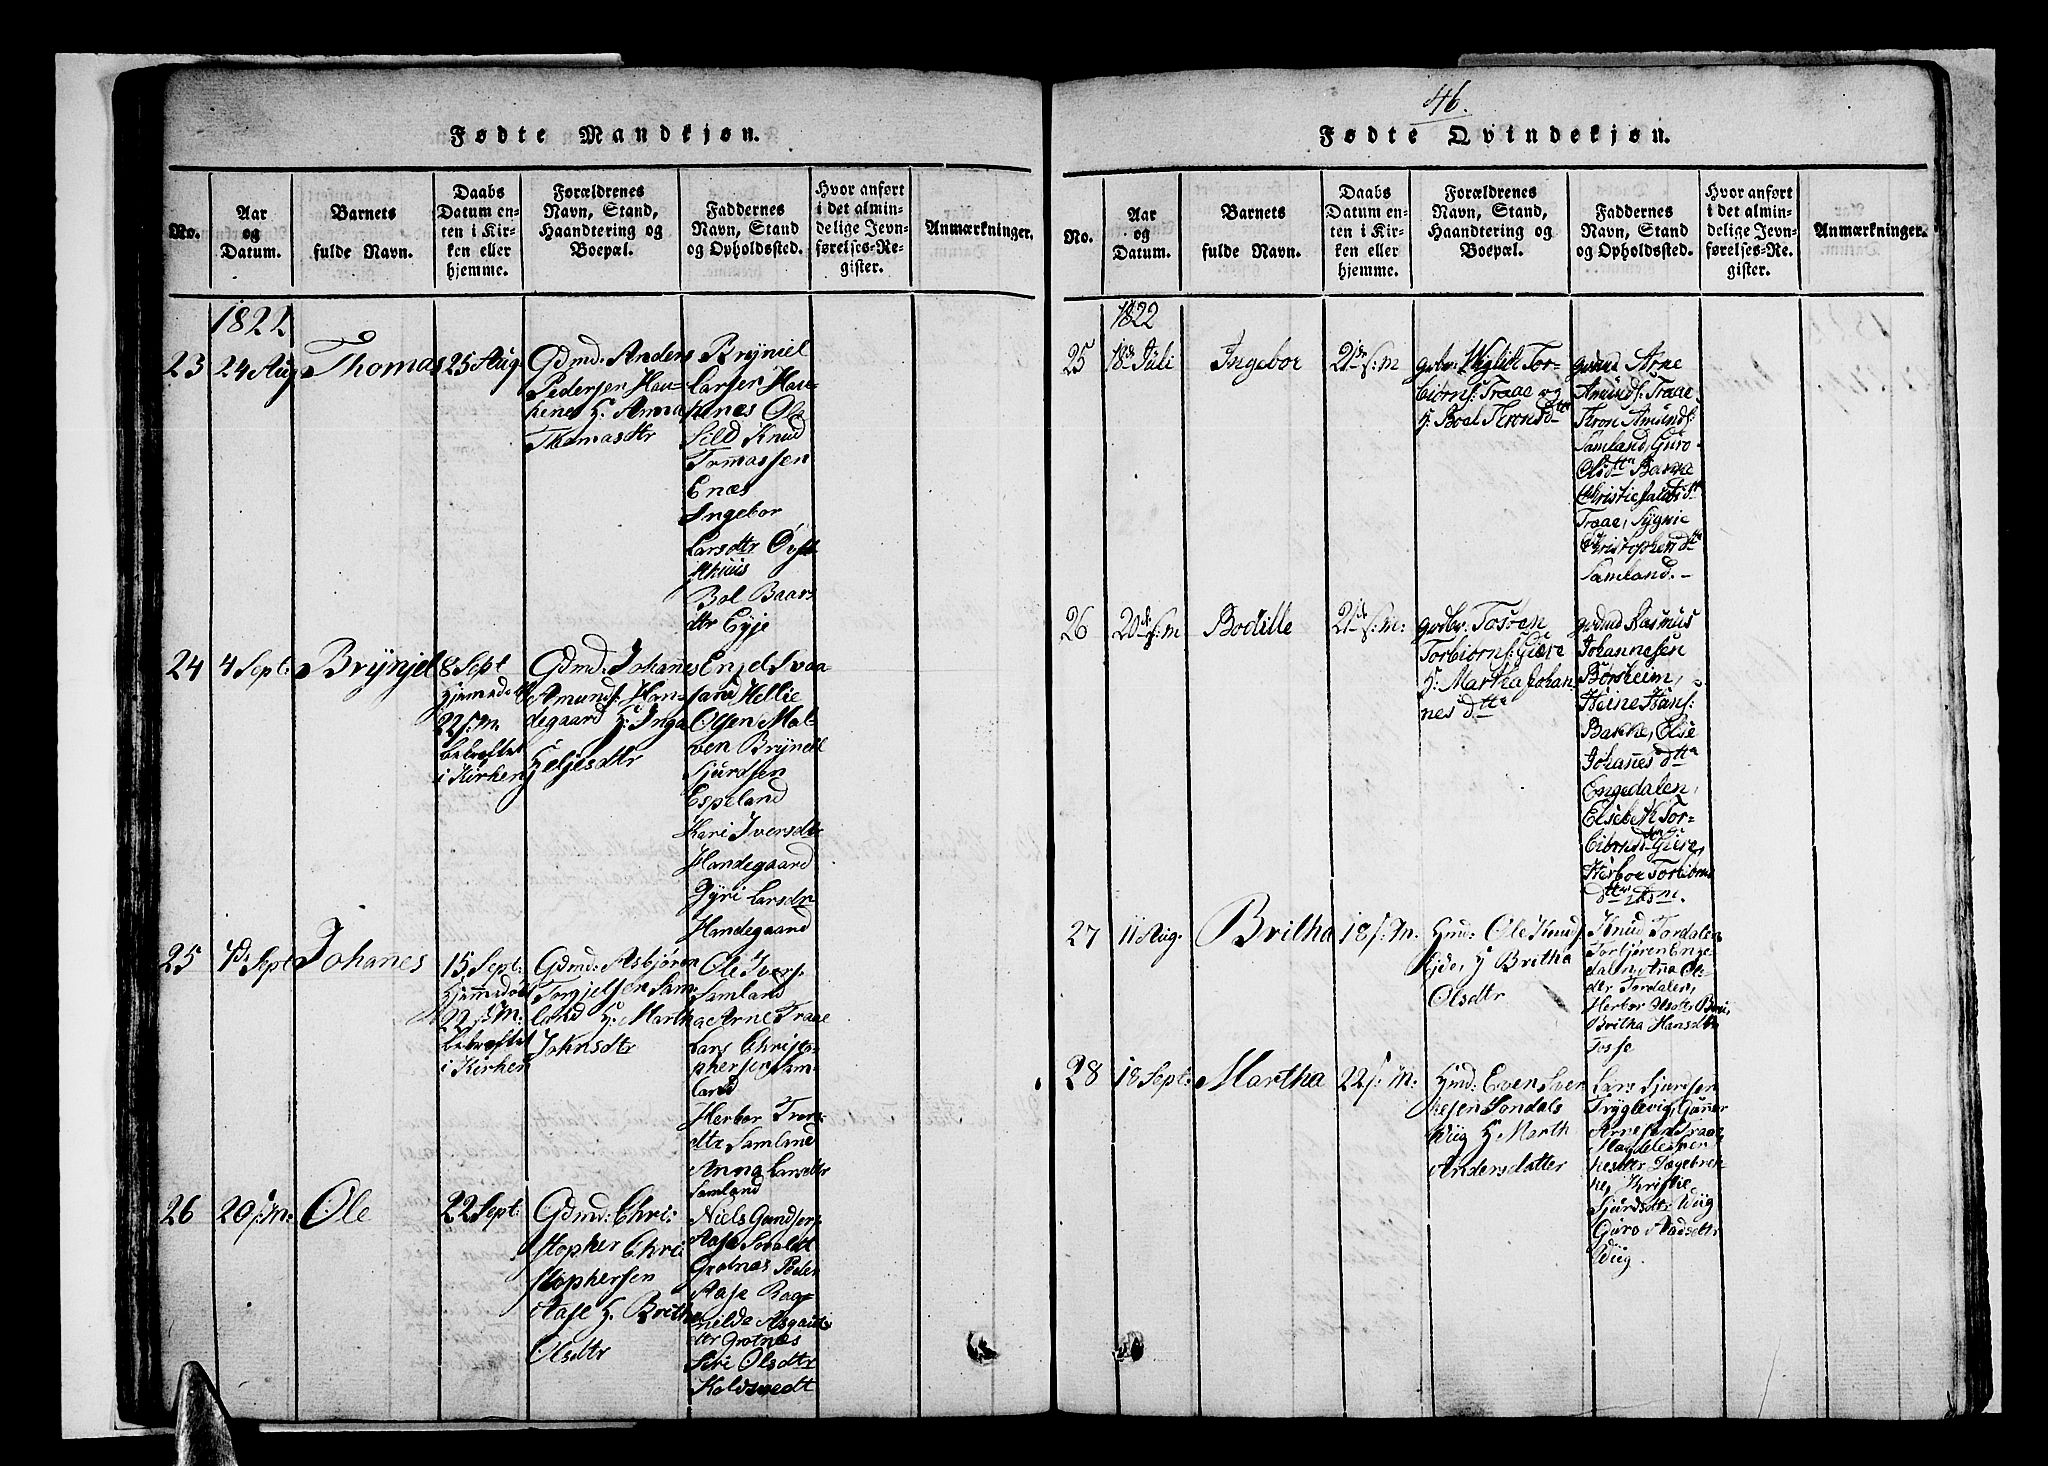 46.
Fødte Mandkjøn.
No.
Aar
og
Datum.
Barnets
fulde Navn.
Daabs
Datum en-
ten i Kir-
ken eller
hjemme.
Forældrenes
Navn, Stand,
Haandtering og
Boepæl.
Faddernes
Navn, Stand
og Opholdssted.
Hvor anført
i det almin-
delige Jevn-
førelses-Re-
gister.
Anmærkninger.
1822
23
24 Aug
Thomas
25 Aug
Gdmd: Anders
Pedersen Hau-
kenes H: Anna
Thomasdtr
Brÿniel
Larsen Hau-
kenes Ole
Sild Knud
Tomassen
Enæs
Ingebor
Larsdtr
Bol Baars
dtr Eyje
24
4 Sept:
Brÿnjel
8 Sept
hjemedøbt
22 s: M.
bekræftet
i Kirken
Gdmd: Johannes
Amunds: Han-
degaard H: Inga
Heljesdtr
Enjel Svaa
sand Hellie
Olsen Mal-
ven Brÿnell
Sjurdsen
Espeland
Kari Iversdtr
Handegaard
Gÿri Larsdtr
Handegaard
25
7de Sept
Johanes
15 Sept:
hjemedøbt
22 s: M.
bekræftet
i Kirken
Gdmd: Asbjøren
Torgjelsen Sam-
land H: Martha
Johnsdtr
Ole Ivers:
Samland
Arne Traae
Lars Christo-
phersen Sam-
land
Herbor Trons
dtr Samland
Anna Larsdtr
Samland
26
20 s: M:
Ole
22 Sept:
Gdmd: Chri-
stopher Chri
stophersen
Aase H: Britha
Olsdtr
Niels Gundsers:
Aase
Grotnæs Peder
Aase Rag-
nilda Asgauts
dtr Grotnæs
Siri Olsdtr
Koldsvedt
Fødte Qvindekjøn.
No.
Aar
og
Datum.
Barnets
fulde Navn.
Daabs
Datum en-
ten i Kir-
ken eller
hjemme.
Forældrenes
Navn, Stand,
Haandtering og
Boepæl.
Faddernes
Navn, Stand
og Opholdssted.
Hvor anført
i det almin-
delige Jevn-
førelses-Re-
gister.
Anmærkninger.
1822
25
18de Juli
Ingebor
21de s: m
Wiglik Tor-
biørns: Traae og
H: Boel Tronsdtr
Arne
Amunds: Traae,
Tron Amunds:
Samland, Guro
Olsdtr Bakke
Traae, Sygnie
Christophersdtr
Samland.
26
20de s: m
Bodille
21de s: m:
Tosten
Torbiørns: Giere
H: Martha Johan
nesdtr
Rasmus
Johannesen
Børsheim,
Heine Hans:
Bakke, Else
Johannesdtr
Engedalen,
Elsebeth Tor-
biørnsdtr Giere,
Herboe Torbiørns
dtr ibm.
27
11 Aug.
Britha
18 s: M.
Hmd: Ole Knuds
Eide, H Britha
Olsdtr
Knud Tordalen
Torbjøren Enge
dalen, Ana Ole
dtr Tordalen,
Herbor Olsdtr
Britha Hansdtr
Tosse
28
18 Sept:
Martha
22 s: M:
Hmd: Even Iver
sen Sondals
Wiig H. Marth
Andersdatter
Lars Sjurdsen
Tryglevig, Gunner
Arnesen Traae,
Kristie
Sjursdtr Wiig
Guro Aadsdtr
Wiig.